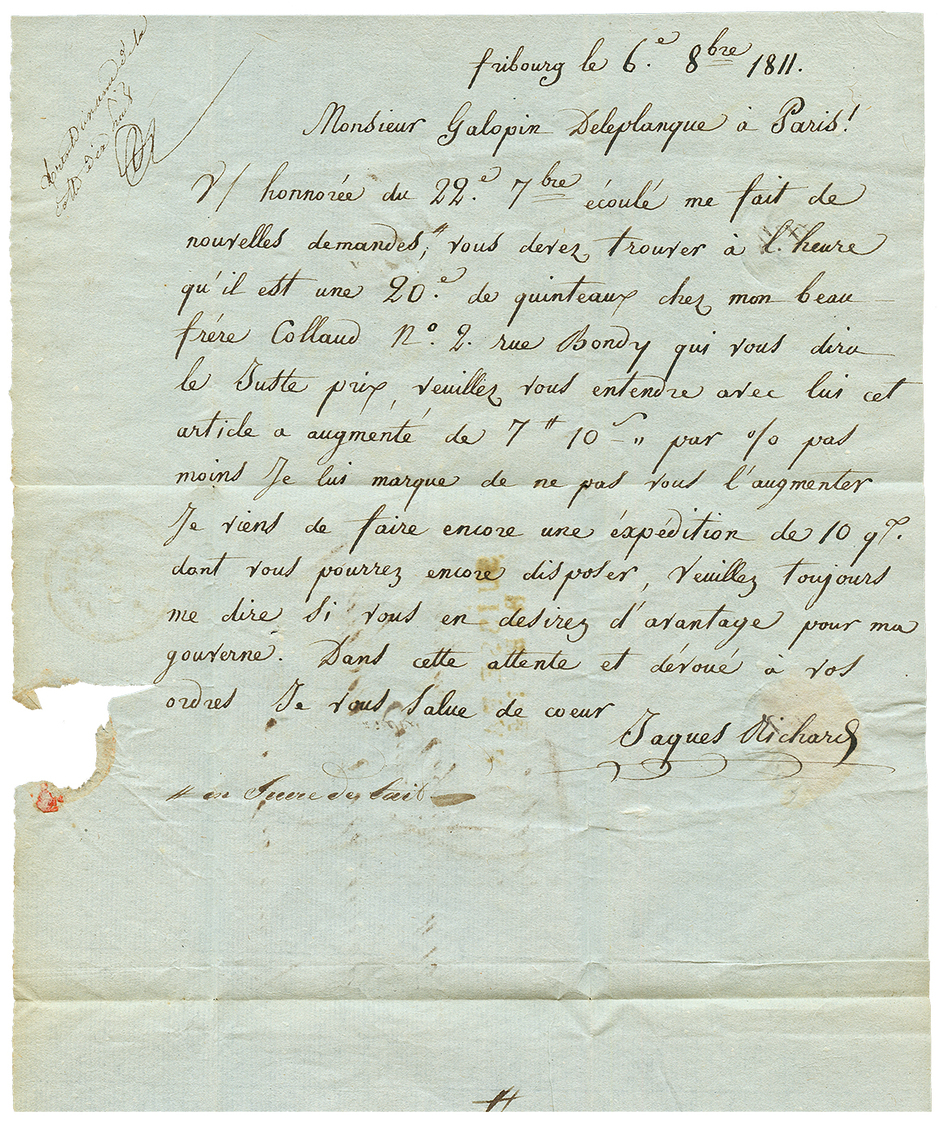 fribourg le 6.e 8bre 1811.
Monsieur Galopin Deleplanque à Paris!
V/ honnorée du 22.e 7bre écoulé me fait de
nouvelles demandes,# vous devez trouver à l'heure
qu'il est une 20.e de quinteaux chez mon beau
frére Collaud N.o 2. rue Bondy qui vous dira
le Juste prix, veuillez vous entendre avec lui cet
article a augménté de 7 # 10 s " par o/o pas
moins Je lui marque de ne pas vous l'augmenter
Je viens de faire encore une éxpédition de 10 qx.
dont vous pourrez encore disposer, Veuillez toujours
me dire si vous en desirez d'avantage pour ma
gouverné. Dans cette attente et dévoué à vos
ordres Je vous salue de coeur
Jaques Richard
# en Sucre de lait
#